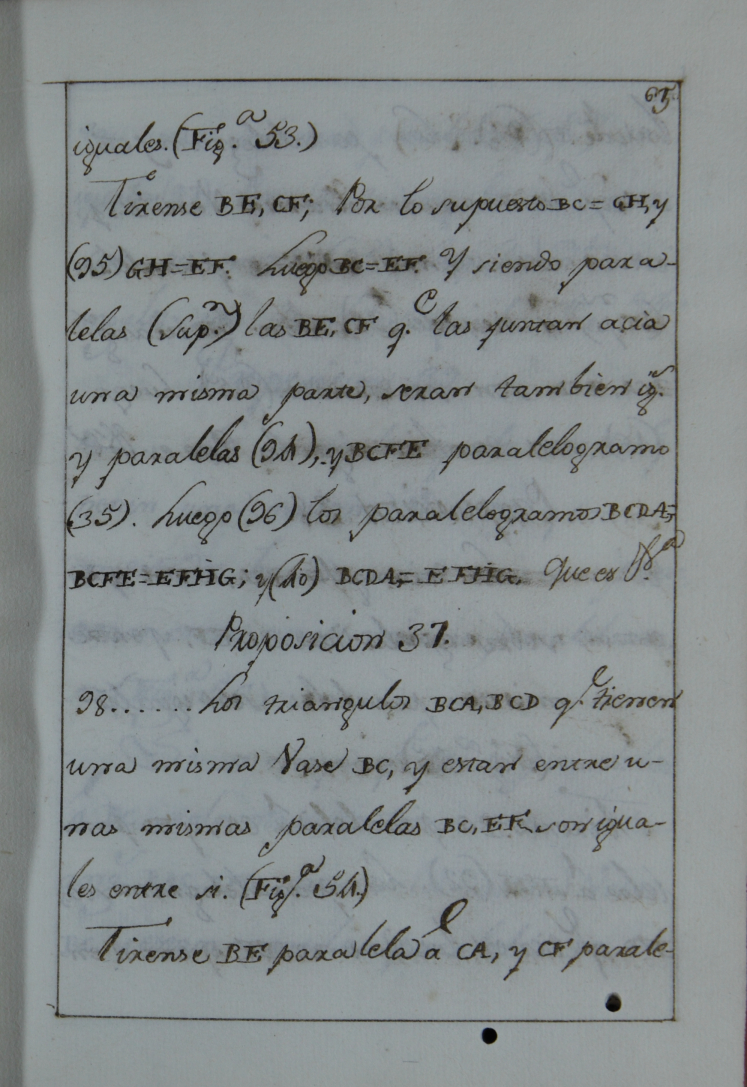 65.
iguales. (Fig.ª 53.)
Tirense BE, CF; Por lo supuesto BC = GH, y
(95) GH = EF. Luego BC = EF. Y siendo para-
lelas (Sup.n) las BE, CF q.e las juntan acia
una misma parte, seran tambien ig.s
y paralelas (94), y BCFE paralelogramo
(35). Luego (96) los paralelogramos BCDA,=
BCFE = EFHG; y (40) BCDA,= EFHG. Que es
Proposicion 37.
98....... Los triangulos BCA, BCD q.e tienen
una misma Vase BC, y estan entre u-
nas mismas paralelas BC, EF son igua-
les entre si. (Fig.ª 54.)
Tirense BE paralela à CA, y CF parale-